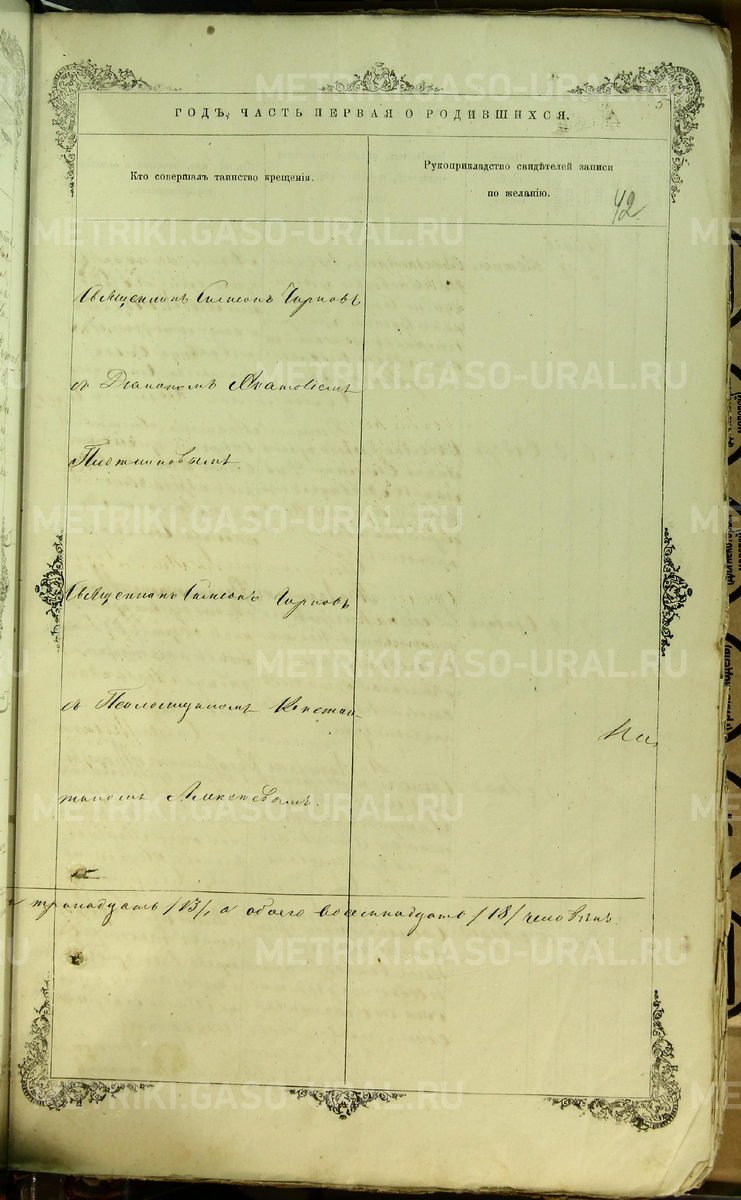 5
ГОДЪ, ЧАСТЬ ПЕРВАЯ О РОДИВШИХСЯ.
Кто совершалъ таинство крещенія.
Рукоприкладство свидѣтелей записи
по желанію.
42
Священникъ Симеонъ Чирковъ
съ Діакономъ
Священникъ Симеонъ Чирковъ
съ Псаломщикомъ Констан-
тиномъ Алексѣевымъ.
тринадцать /13/, а обоего восемнадцать /18/ человѣкъ.
METRIKI.GASO-URAL.RU